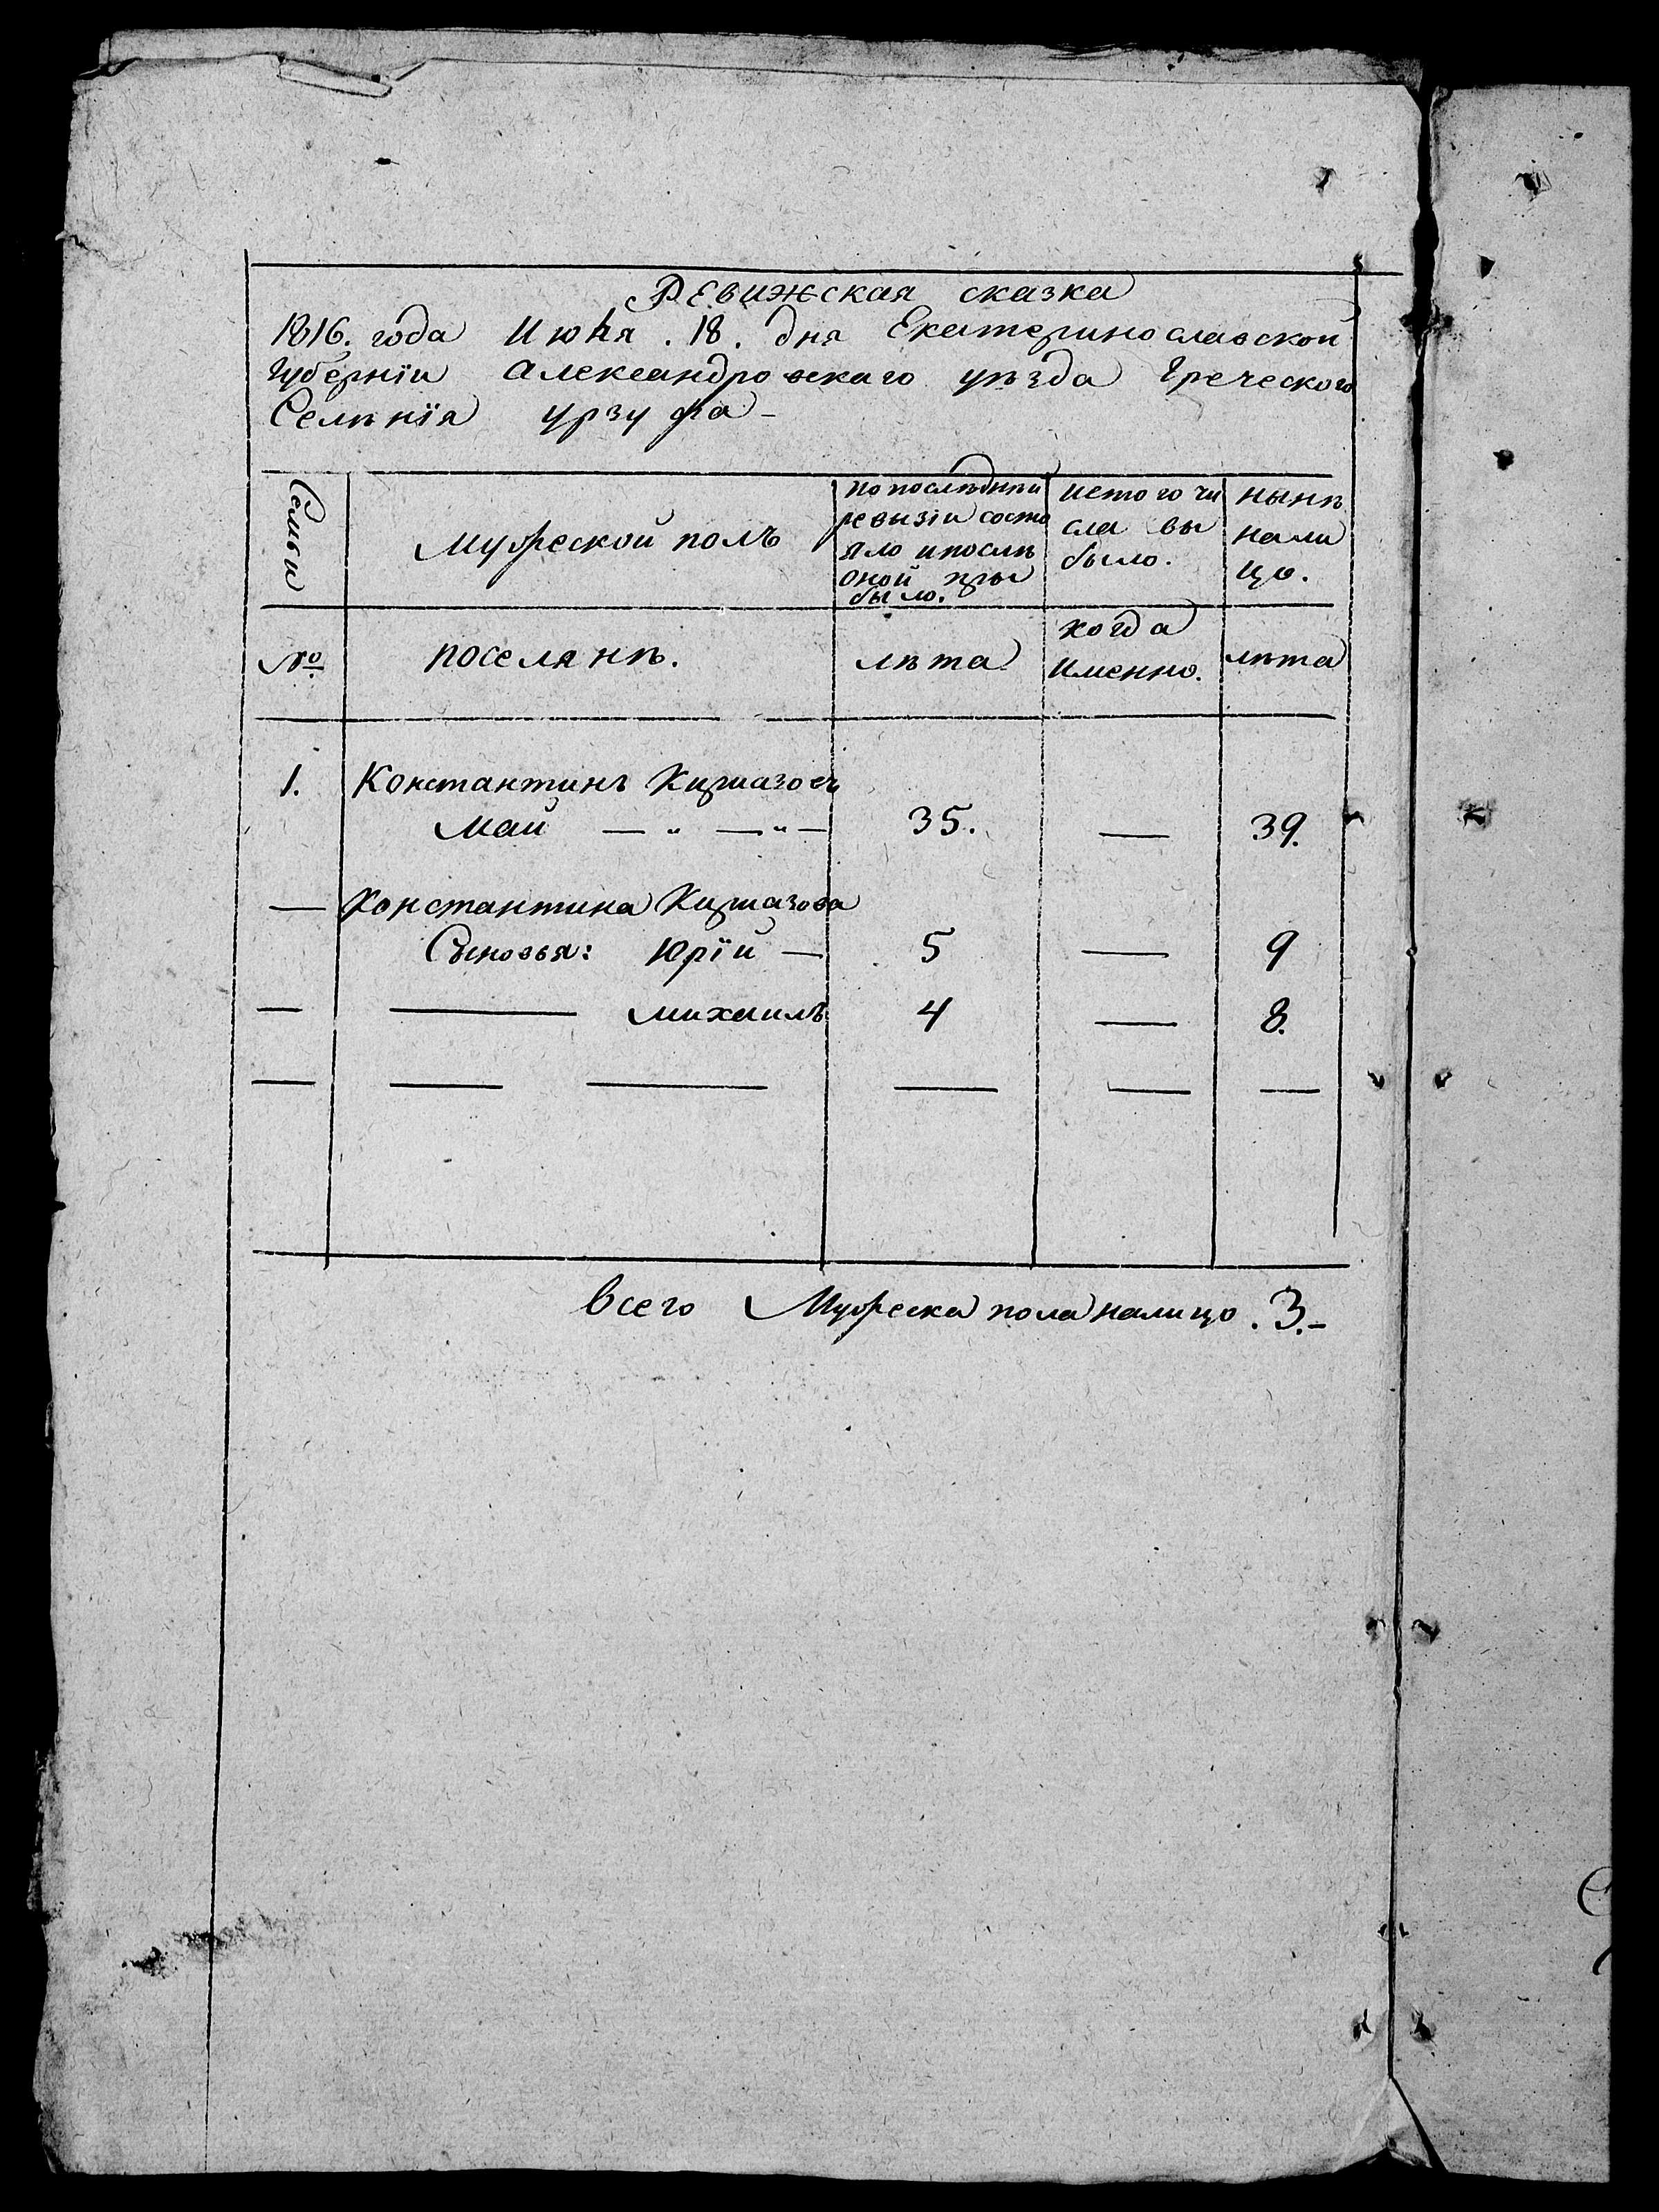 Ревижская сказка
1816. года Июня .18. дня Екатеринославской
Губерніи Александровскаго уѣзда Греческого
Селѣнїя Урзуфа-
Семьи
Мужеской полъ
по послѣдней
ревизіи состо
яло и послѣ
оной при
было.
ис того чи
сла вы
было.
нынѣ
нали
цо.
№
поселянѣ.
лѣта
когда
именно.
лѣта
1. Константинъ
Май — „ — „ — 35. — 39.
— Константина
Сыновья: Юрїй — 5 — 9
— — михаилъ 4 — 8.
— — — — — —
всего Мужеска пола налицо .3.-